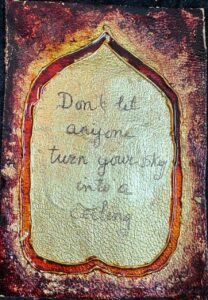 Don't let
anyone
turn your sky
into a
ceiling